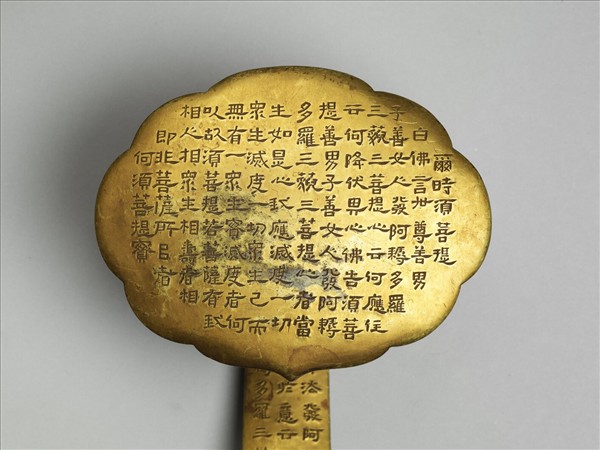 爾時須菩提
白佛言世尊善男
子善女人發阿耨多羅
三藐三菩提心云何應住
云何降伏其心佛告須菩
提善男子善女人發阿耨
多羅三藐三菩提心者當
生如是心我應滅度一切
眾生滅度一切眾生已而
無有一眾生實滅度者何
以故須菩提若菩薩有我
相人相眾生相壽者相
即非菩薩所以者
何須菩提實
法發阿
於意云
多羅三